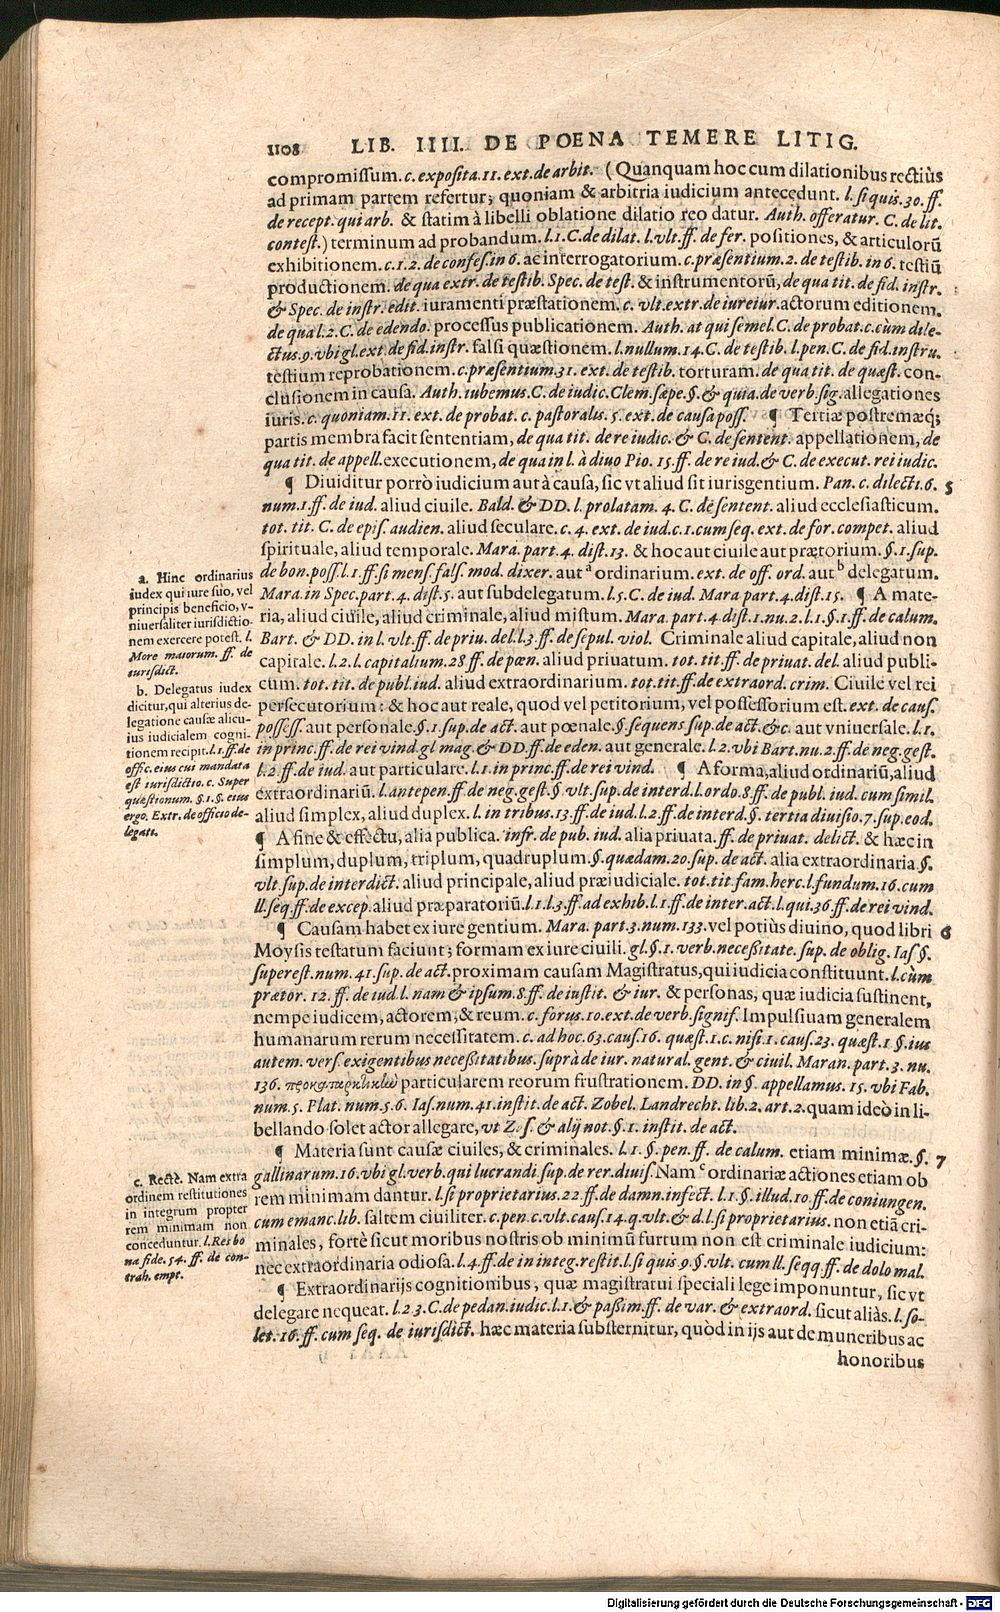 1108 LIB. IIII. DE POENA TEMERE LITIG.
compromissum. c. exposita. 11. ext. de arbit. (Quanquam hoc cum dilationibus rectiùs
ad primam partem refertur; quoniam & arbitria iudicium antecedunt. l. si quis. 30. ff.
de recept. qui arb. & statim à libelli oblatione dilatio reo datur. Auth. offeratur. C. de lit.
contest.) terminum ad probandum. l. 1. C. de dilat. l. vlt. ff. de fer. positiones, & articulorũ
exhibitionem. c. 1. 2. de confes. in 6. ac interrogatorium. c. præsentium. 2. de testib. in 6. testiũ
productionem. de qua extr. de testib. Spec. de test. & instrumentorũ, de qua tit. de fid. instr.
& Spec. de instr. edit. iuramenti præstationem. c. vlt. extr. de iureiur. actorum editionem.
de qua l. 2. C. de edendo. processus publicationem. Auth. at qui semel. C. de probat. c. cùm dile-
ctus. 9. vbi gl. ext. de fid. instr. falsi quæstionem. l. nullum. 14. C. de testib. l. pen. C. de fid. instru.
testium reprobationem. c. præsentium. 31. ext. de testib. torturam. de qua tit. de quæst. con-
clusionem in causa. Auth. iubemus. C. de iudic. Clem. sæpe. §. & quia. de verb. sig. allegationes
iuris. c. quoniam. 11. ext. de probat. c. pastoralis. 5. ext. de causa poss. ¶ Tertiæ postremæq́;
partis membra facit sententiam, de qua tit. de re iudic. & C. de sentent. appellationem, de
qua tit. de appell. executionem, de qua in l. à diuo Pio. 15. ff. de re iud. & C. de execut. rei iudic.
¶ Diuiditur porrò iudicium aut à causa, sic vt aliud sit iurisgentium. Pan. c. dilecti. 6. 5
num. 1. ff. de iud. aliud ciuile. Bald. & DD. l. prolatam. 4. C. de sentent. aliud ecclesiasticum.
tot. tit. C. de epis. audien. aliud seculare. c. 4. ext. de iud. c. 1. cum seq. ext. de for. compet. aliud
spirituale, aliud temporale. Mara. part. 4. dist. 13. & hoc aut ciuile aut prætorium. §. 1. sup.
de bon. poss. l. 1. ff. si mens. fals. mod. dixer. aut a ordinarium. ext. de off. ord. aut b delegatum.
Mara. in Spec. part. 4. dist. 5. aut subdelegatum. l. 5. C. de iud. Mara part. 4. dist. 15. ¶ A mate-
ria, aliud ciuile, aliud criminale, aliud mistum. Mara. part. 4. dist. 1. nu. 2. l. 1. §. 1. ff. de calum.
Bart. & DD. in l. vlt. ff. de priu. del. l. 3. ff. de sepul. viol. Criminale aliud capitale, aliud non
capitale. l. 2. l. capitalium. 28. ff. de pœn. aliud priuatum. tot. tit. ff. de priuat. del. aliud publi-
cum. tot. tit. de publ. iud. aliud extraordinarium. tot. tit. ff. de extraord. crim. Ciuile vel rei
persecutorium: & hoc aut reale, quod vel petitorium, vel possessorium est. ext. de caus.
possess. aut personale. §. 1. sup. de act. aut pœnale. §. sequens sup. de act. &c. aut vniuersale. l. 1.
in princ. ff. de rei vind. gl. mag. & DD. ff. de eden. aut generale. l. 2. vbi Bart. nu. 2. ff. de neg. gest.
l. 2. ff. de iud. aut particulare. l. 1. in princ. ff. de rei vind. ¶ A forma, aliud ordinariũ, aliud
extraordinariũ. l. antepen. ff. de neg. gest. §. vlt. sup. de interd. l. ordo. 8. ff. de publ. iud. cum simil.
aliud simplex, aliud duplex. l. in tribus. 13. ff. de iud. l. 2. ff. de interd. §. tertia diuisio. 7. sup. eod.
¶ A fine & effectu, alia publica. infr. de pub. iud. alia priuata. ff. de priuat. delict. & hæc in
simplum, duplum, triplum, quadruplum. §. quædam. 20. sup. de act. alia extraordinaria. §.
vlt. sup. de interdict. aliud principale, aliud præiudiciale. tot. tit. fam. herc. l. fundum. 16. cum
ll. seq. ff. de excep. aliud præparatoriũ. l. 1. l. 3. ff. ad exhib. l. 1. ff. de inter. act. l. qui. 36. ff. de rei vind.
¶ Causam habet ex iure gentium. Mara. part. 3. num. 133. vel potiùs diuino, quod libri 6
Moysis testatum faciunt; formam ex iure ciuili. gl. §. 1. verb. necessitate. sup. de oblig. Ias §.
superest. num. 41. sup. de act. proximam causam Magistratus, qui iudicia constituunt. l. cùm
prætor. 12. ff. de iud. l. nam & ipsum. 8. ff. de iustit. & iur. & personas, quæ iudicia sustinent,
nempe iudicem, actorem, & reum. c. forus. 10. ext. de verb. signif. Impulsiuam generalem
humanarum rerum necessitatem. c. ad hoc. 63. caus. 16. quæst. 1. c. nisi. 1. caus. 23. quæst. 1. §. ius
autem. vers. exigentibus necessitatibus. suprà de iur. natural. gent. & ciuil. Maran. part. 3. nu.
136. προκαταρκτικὼ particularem reorum frustrationem. DD. in §. appellamus. 15. vbi Fab.
num. 5. Plat. num. 5. 6. Ias. num. 41. instit. de act. Zobel. Landrecht. lib. 2. art. 2. quam ideò in li-
bellando solet actor allegare, vt Z. s. & alij not. §. 1. instit. de act.
¶ Materia sunt causæ ciuiles, & criminales. l. 1. §. pen. ff. de calum. etiam minimæ. §. 7
gallinarum. 16. vbi gl. verb. qui lucrandi. sup. de rer. diuis. Nam c ordinariæ actiones etiam ob
rem minimam dantur. l. si proprietarius. 22. ff. de damn. infect. l. 1. §. illud. 10. ff. de coniungen.
cum emanc. lib. saltem ciuiliter. c. pen. c. vlt. caus. 14. q. vlt. & d. l. si proprietarius. non etiã cri-
minales, fortè sicut moribus nostris ob minimũ furtum non est criminale iudicium:
nec extraordinaria odiosa. l. 4. ff. de in integ. restit. l. si quis. 9. §. vlt. cum ll. seqq. ff. de dolo mal.
¶ Extraordinarijs cognitionibus, quæ magistratui speciali lege imponuntur, sic vt
delegare nequeat. l. 2. 3. C. de pedan. iudic. l. 1. & passim. ff. de var. & extraord. sicut aliàs. l. so-
let. 16. ff. cum seq. de iurisdict. hæc materia substernitur, quòd in ijs aut de muneribus ac
honoribus
a. Hinc ordinarius
iudex qui iure suo, vel
principis beneficio, v-
niuersaliter iurisdictio-
nem exercere potest. l.
More maiorum. ff. de
iurisdict.
b. Delegatus iudex
dicitur, qui alterius de-
legatione causæ alicu-
ius iudicialem cogni-
tionem recipit. l. 1. ff. de
offic. eius cui mandata
est iurisdictio. c. Super
quæstionum. §. 1. §. eius
ergo. Extr. de officio de-
legati.
c. Rectè. Nam extra
ordinem restitutiones
in integrum propter
rem minimam non
conceduntur. l. Res bo
na fide. 54. ff. de con-
trah. empt.
Digitalisierung gefördert durch die Deutsche Forschungsgemeinschaft - DFG